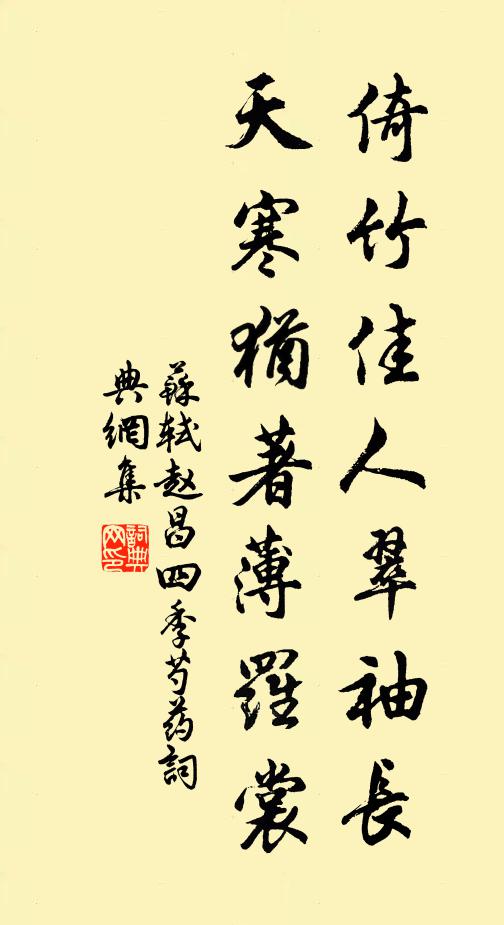 倚竹佳人翠袖長
天寒猶著薄羅裳
蘇軾赵昌四季芍药詞
典網集
詞典
网印